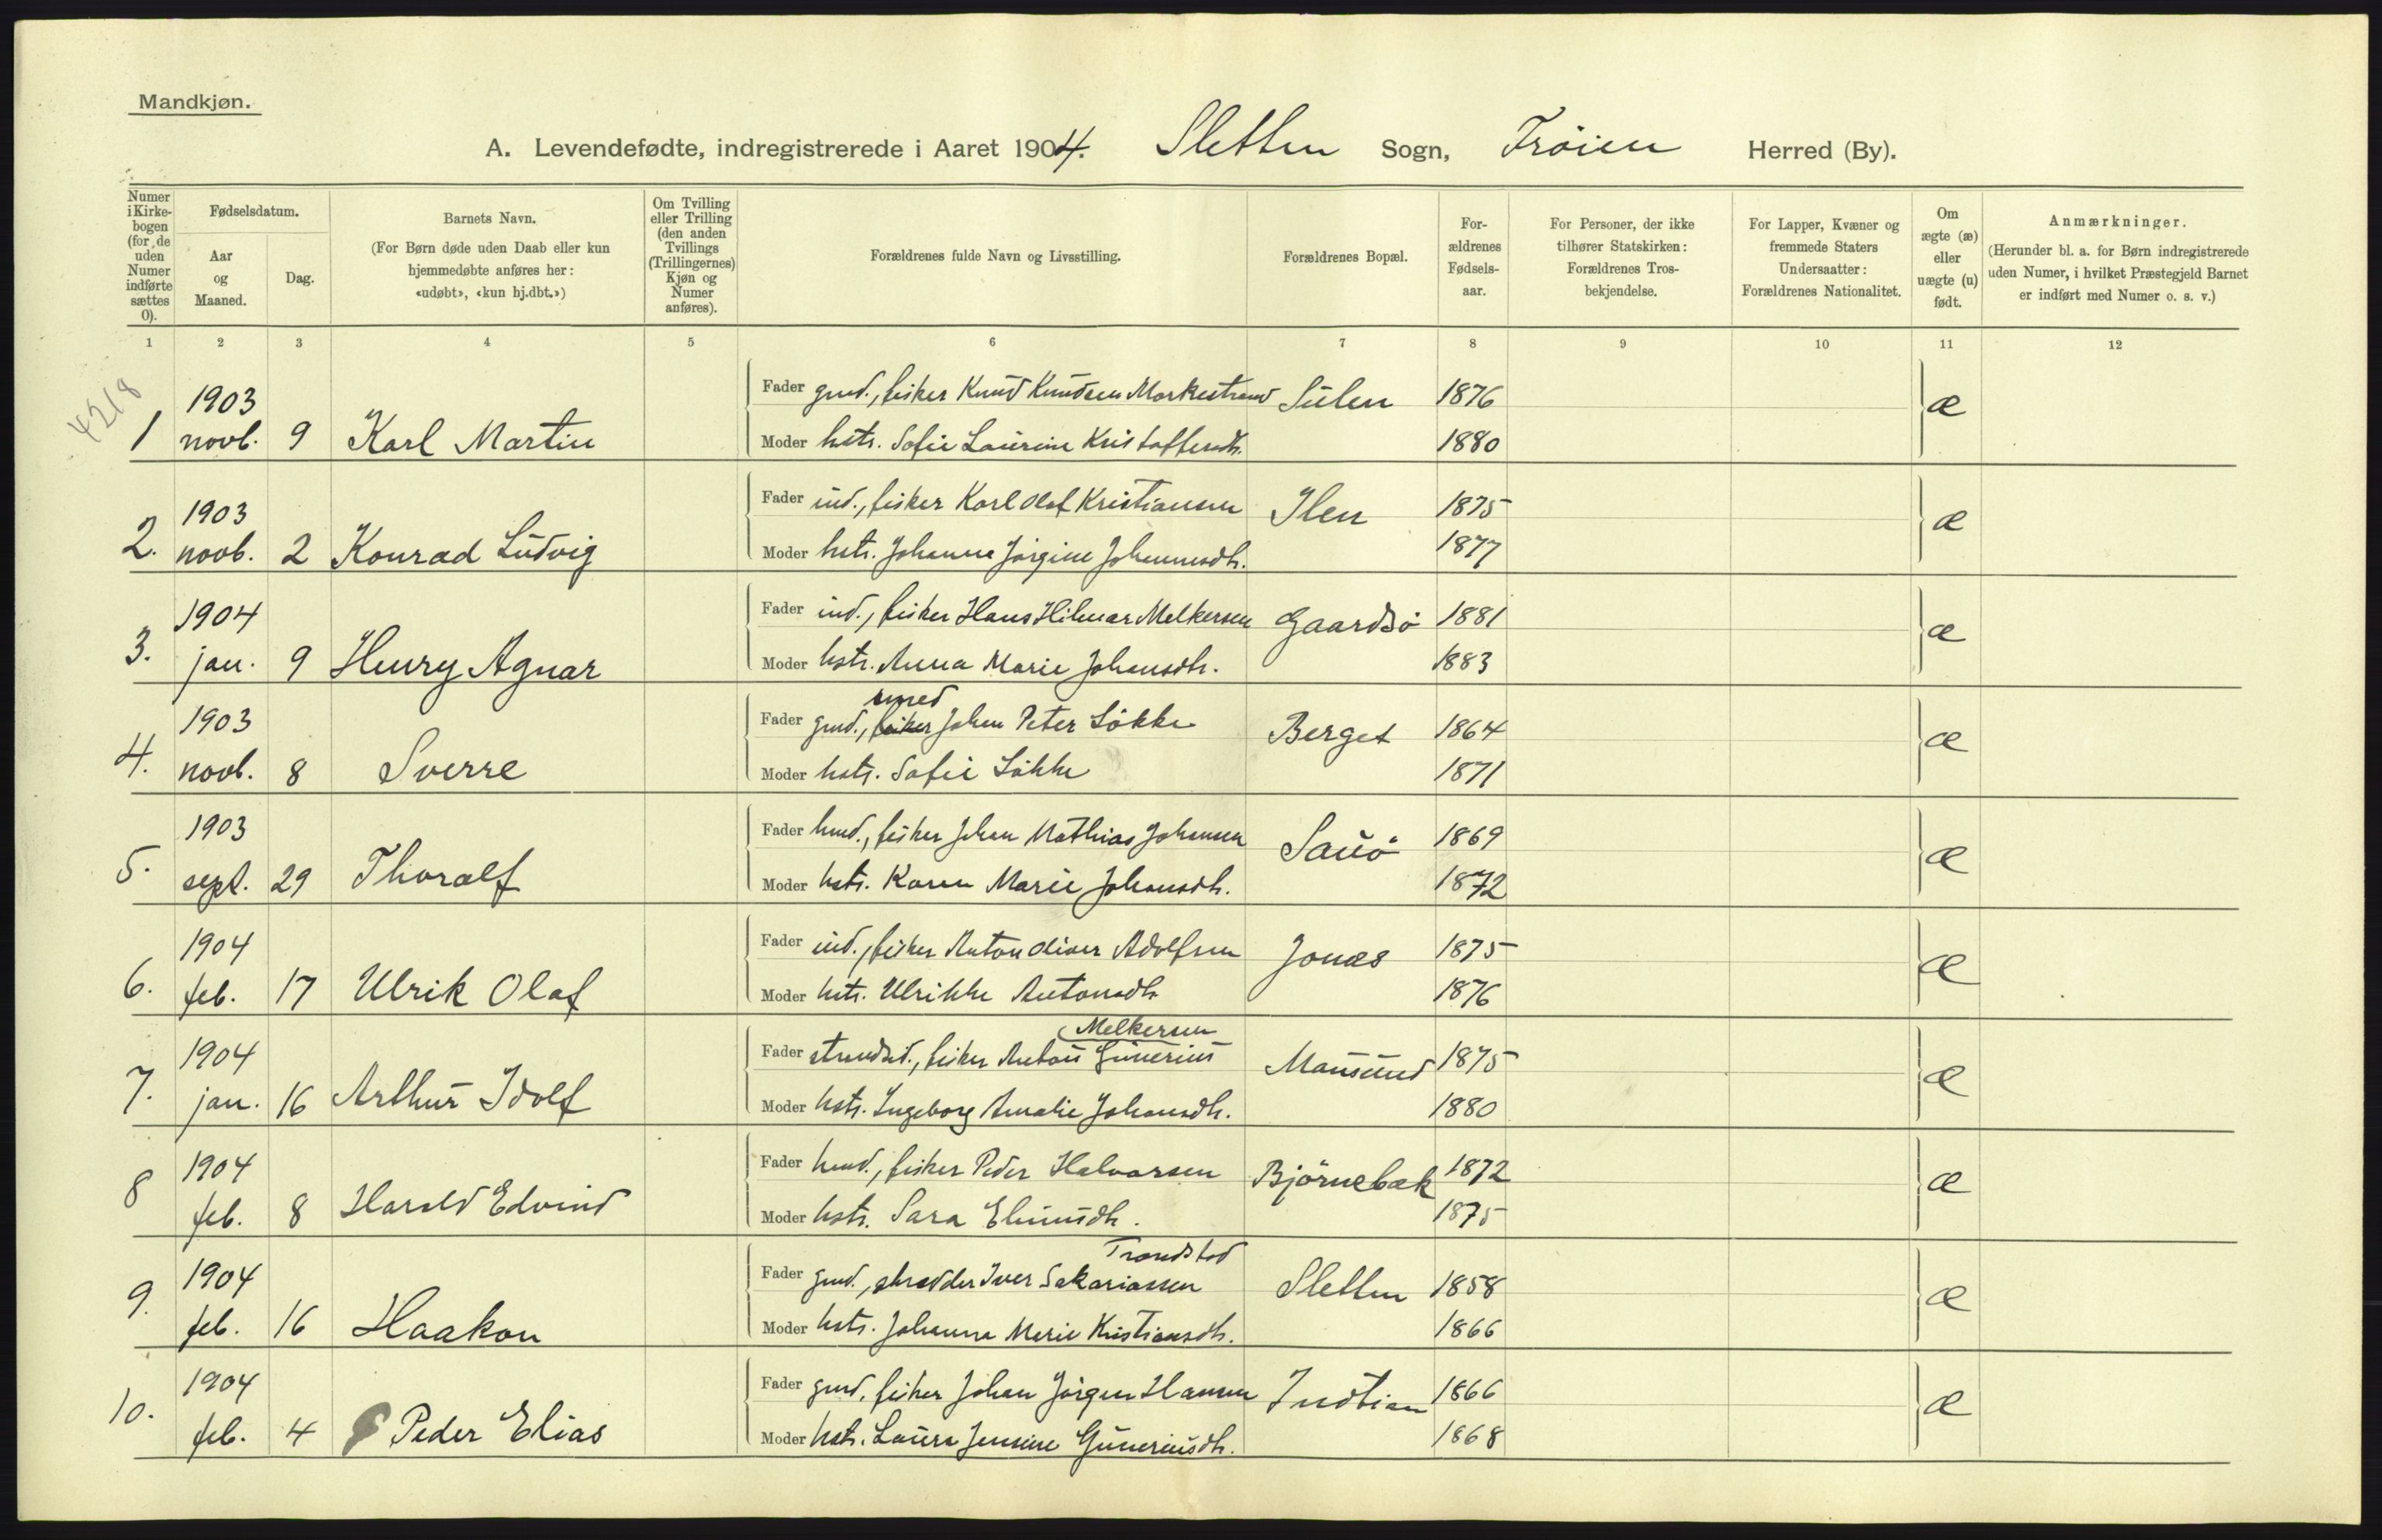 Mandkjøn.
A. Levendefødte, indregistrerede i Aaret 1904. Sletten Sogn, Frøien Herred (By).
Numer i Kirkebogen (for de uden Numer indførte sættes 0).
Fødselsdatum.
Aar og Maaned.
Dag.
Barnets Navn.
(For Børn døde uden Daab eller kun hjemmedøbte anføres her: «udøbt», «kun hj.dbt.»)
Om Tvilling eller Trilling (den anden Tvillings (Trillingernes) Kjøn og Numer anføres).
Forældrenes fulde Navn og Livsstilling.
Forældrenes Bopæl.
Forældrenes Fødselsaar.
For Personer, der ikke tilhører Statskirken: Forældrenes Trosbekjendelse.
For Lapper, Kvæner og fremmede Staters Undersaatter: Forældrenes Nationalitet.
Om ægte (æ) eller uægte (u) født.
Anmærkninger.
(Herunder bl. a. for Børn indregistrerede uden Numer, i hvilket Præstegjeld Barnet er indført med Numer o. s. v.)
1 2 3 4 5 6 7 8 9 10 11 12
4218
1 1903 novb. 9 Karl Martin
Fader gmd., fisker Knud Knudsen Morkestrand Sulen 1876 æ
Moder hstr. Sofie Laurine Kristoffersdtr. 1880
2. 1903 novb. 2 Konrad Ludvig
Fader ind., fisker Karl Olaf Kristiansen Ilen 1875 æ
Moder hstr. Johanna Jørgine Johannesdtr. 1877
3. 1904 jan. 9 Henry Agnar
Fader ind., fisker Hans Hilmar Melkersen Gaardsö 1881 æ
Moder hstr. Anna Marie Johansdtr. 1883
4. 1903 novb. 8 Sverre
smed
Fader gmd., fisker Johan Peter Lökke Berget 1864 æ
Moder hstr. Sofie Lökke 1871
5. 1903 sept. 29 Thoralf
Fader hmd., fisker Johan Mathias Johansen Sauö 1869 æ
Moder hstr. Karen Marie Johansdtr. 1872
6. 1904 feb. 17 Ulrik Olaf
Fader ind., fisker Anton Oliver Adolfsen Jonas 1875 æ
Moder hstr. Ulrikke Antonsdtr 1876
7. 1904 jan. 16 Arthur Idolf
Melkersen
Fader strandsd., fisker Anton Gunerius Mausund 1875 æ
Moder hstr. Ingeborg Amalie Johansdtr. 1880
8 1904 feb. 8 Harald Edvind
Fader hmd., fisker Peder Halvorsen Björnebæk 1872 æ
Moder hstr. Sara 1875
9. 1904 feb. 16 Haakon
Trondstad
Fader gmd., skrædder Iver Sakariassen Sletten 1858 æ
Moder hstr. Johanna Marie Kristiansdtr. 1866
10. 1904 feb. 4 Peder Elias
Fader gmd., fisker Johan Jörgen Hansen Indtian 1866 æ
Moder hstr. Laura Jensine Guneriusdtr. 1868